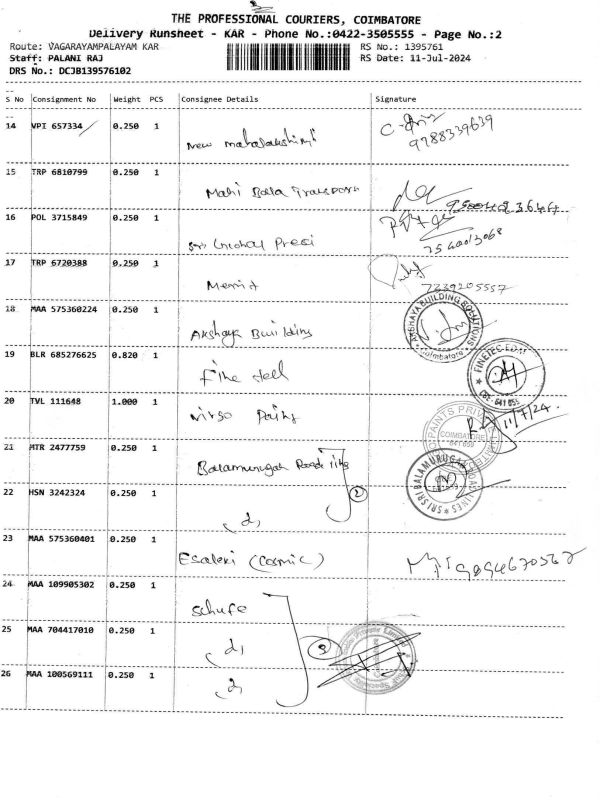 THE PROFESSIONAL COURIERS, COIMBATORE
Delivery Runsheet - KAR - Phone No.:0422-3505555 - Page No.:2
Route: VAGARAYAMPALAYAM KAR RS No.: 1395761
Staff: PALANI RAJ RS Date: 11-Jul-2024
DRS No.: DCJB139576102
S No Consignment No Weight PCS Consignee Details Signature
14 VPI 657334 0.250 1
New mahalakshmi
9788339639
15 TRP 6810799 0.250 1
Mahi Bala Transport
16 POL 3715849 0.250 1
17 TRP 6720388 0.250 1
7339205557
Merit
18 MAA 575360224 0.250 1
Akshaya Building
AKSHAYA BUILDING SOLUTIONS
Coimbatore
19 BLR 685276625 0.820 1
Fine steel
20 TVL 111648 1.000 1
11/7/24
COIMBATORE
641 659
21 MTR 2477759 0.250 1
Balamurugan Road
SRI SRI BALAMURUGAN ROAD LINES
2
22 HSN 3242324 0.250 1
23 MAA 575360401 0.250 1
Esaleri (cosmic)
24 MAA 109905302 0.250 1
schufe
25 MAA 704417010 0.250 1
3
26 MAA 100569111 0.250 1